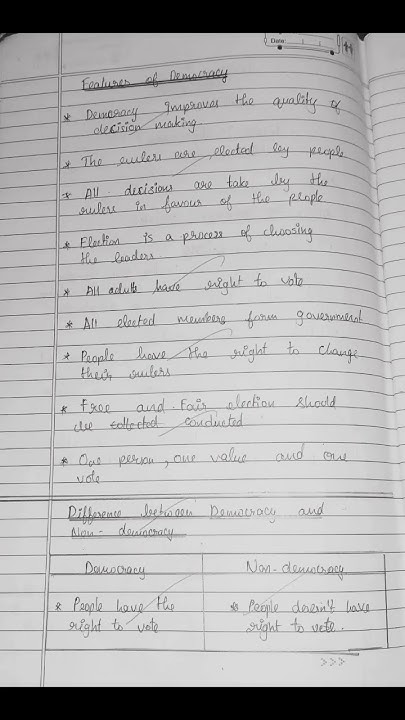 Date:
Features of Democracy
* Democracy improves the quality of
decision making
* The rulers are elected by people
* All decisions are take by the
rulers in favour of the people
* Election is a process of choosing
the leaders
* All adults have right to vote
* All elected members form government
* People have the right to change
their rulers
* Free and Fair election should
be collected conducted
* One person, one value and one
vote
Difference between Democracy and
Non-democracy
Democracy Non-democracy
* People have the * People doesn't have
right to vote right to vote.
>>>